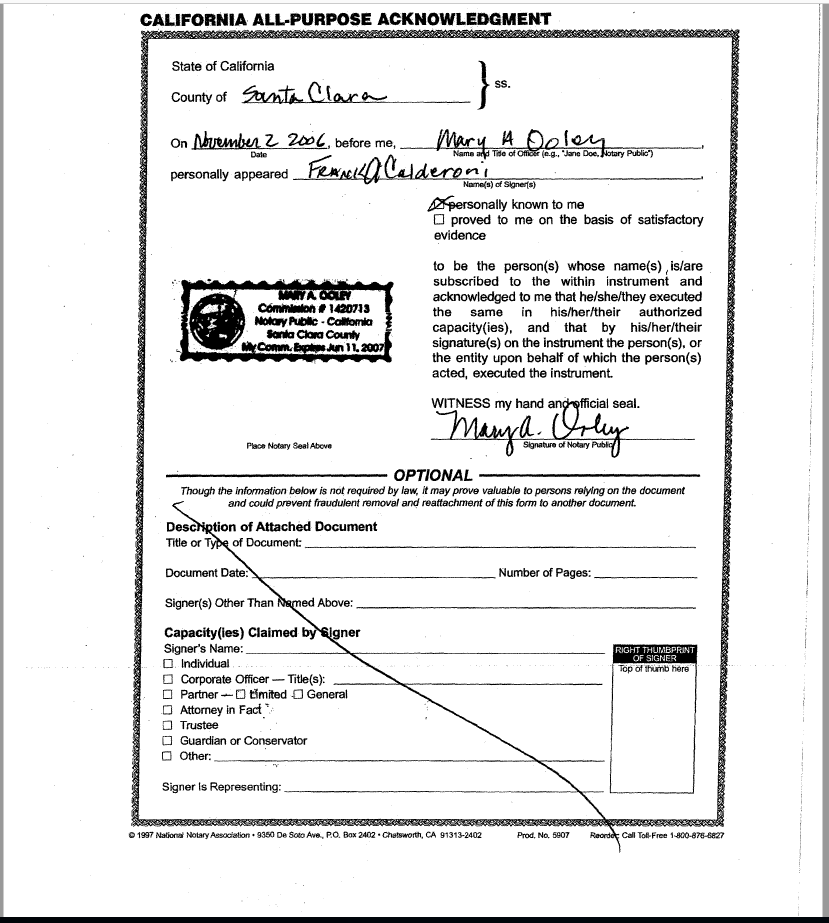 CALIFORNIA ALL-PURPOSE ACKNOWLEDGMENT
State of California
County of Santa Clara
ss.
On November 2 2006, before me, Mary A Ooley,
Date
Name and Title of Officer (e.g., "Jane Doe, Notary Public")
personally appeared Frank A Calderoni,
Name(s) of Signer(s)
personally known to me
☐ proved to me on the basis of satisfactory
evidence
to be the person(s) whose name(s) is/are
subscribed to the within instrument and
acknowledged to me that he/she/they executed
the same in his/her/their authorized
capacity(ies), and that by his/her/their
signature(s) on the instrument the person(s), or
the entity upon behalf of which the person(s)
acted, executed the instrument.
MARY A. OOLEY
Commission # 1420713
Notary Public - California
Santa Clara County
My Comm. Expires Jun 11, 2007
WITNESS my hand and official seal.
Mary A. Ooley
Place Notary Seal Above
Signature of Notary Public
OPTIONAL
Though the information below is not required by law, it may prove valuable to persons relying on the document
and could prevent fraudulent removal and reattachment of this form to another document.
Description of Attached Document
Title or Type of Document:
Document Date: Number of Pages:
Signer(s) Other Than Named Above:
Capacity(ies) Claimed by Signer
Signer's Name:
☐ Individual
☐ Corporate Officer — Title(s):
☐ Partner — ☐ Limited ☐ General
☐ Attorney in Fact
☐ Trustee
☐ Guardian or Conservator
☐ Other:
Signer Is Representing:
RIGHT THUMBPRINT
OF SIGNER
Top of thumb here
© 1997 National Notary Association • 9350 De Soto Ave., P.O. Box 2402 • Chatsworth, CA 91313-2402 Prod. No. 5907 Reorder: Call Toll-Free 1-800-876-6827